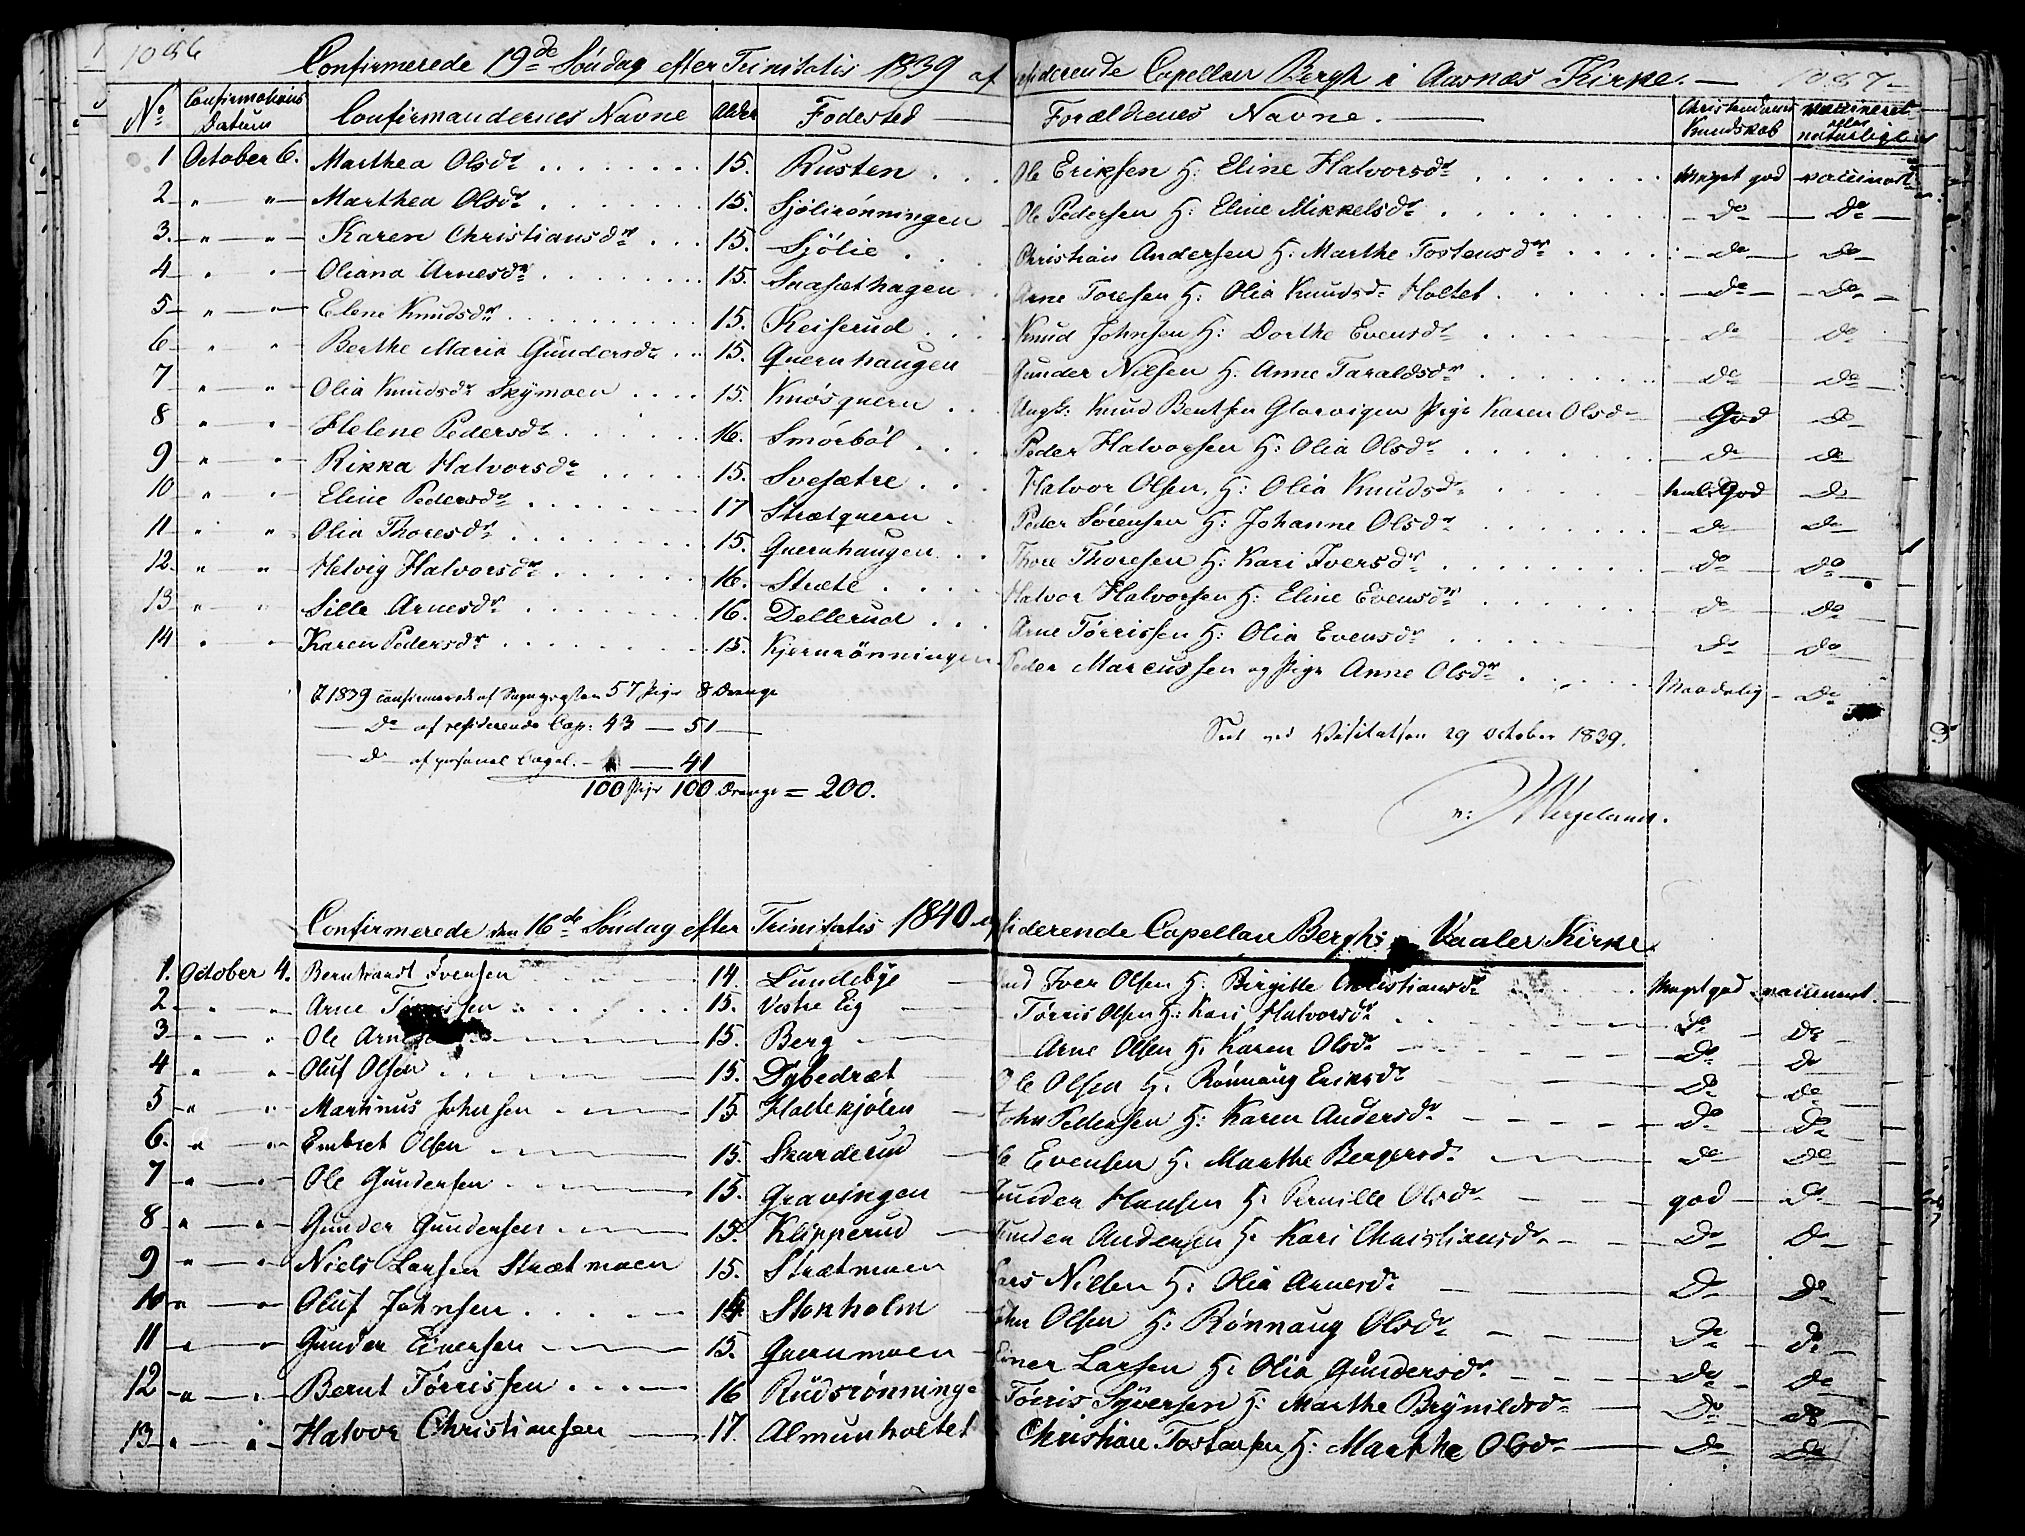 1086
Confirmerede 19de Søndag efter Trinitatis 1839 af residerende Capellan Bergh i Aasnæs Kirke. — 1087
No Confirmations Datum Confirmandernes Navne Alder Fødested Forældrenes Navne. Christendoms Kundskab vaccineret eller naturlige
1 October 6. Marthea Olsdr 15. Rusten Ole Eriksen H: Eline Halvorsdr Meget god vaccineret
2 " " Marthea Olsdr 15. Sjölirönningen Ole Pedersen H: Eline Mikkelsdr Do Do
3. " " Karen Christiansdr 15. Sjölie Christian Andersen H: Marthe Tostensdr do Do
4 " " Oliana Arnesdr 15. Snasæthagen Arne Toresen H: Olia Knudsdr Holtet Do Do
5 " " Elene Knudsdr 15. Keiserud Knud Johnsen H: Dorthe Evensdr Do Do
6 " " Berthe Maria Gundersdr 15. Quernhaugen Gunder Nilsen H: Anne Taraldsdr Do Do
7 " " Olia Knudsdr Skymoen 15. Knösquern Ungk: Knud Bentsen Glorvigen Pige Karen Olsd God Do
8 " " Helene Pedersdr 16. Smörböl Peder Halvorsen H: Olia Olsdr Do Do
9 " " Rikka Halvorsdr 15. Svesætre Halvor Olsen H: Olia Knudsdr God Do
10 " " Eline Pedersdr 17 Strætquern Peder Sörensen H: Johanne Olsdr Do Do
11 " " Olia Thoresdr 15. Quernhaugen Thore Thoresen H: Kari Iversdr Do Do
12. " " Helvig Halvorsdr 16. Stræte Halvor Halvorsen H: Eline Evensdr Do Do
13 " " Sille Arnesdr 16. Dellerud Arne Törrissen H: Olia Evensdr Do Do
14 " " Karen Pedersdr 15. Kjernrönningen Peder Marcussen og Pige Anne Olsdr Maadelig Do
I 1839 confirmerede af Sognepresten 57 Piger 8 Drenge
— Do af residerende Cap: 43 — 51 —
— Do af personel Capel. — — 41
100 Piger 100 Drenge = 200.
Seet ved Visitatsen 29 October 1839.
n: Wergeland.
Confirmerede den 16de Søndag efter Trinitatis 1840 af residerende Capellan Bergh i Vaaler Kirke.
1. October 4. Berntrandt Iversen 14. Lundebye Iver Olsen H: Birgitte Christiansdr Meget god vaccineret.
2 " " Arne Törrissen 15. Vestre Eig Törris Olsen H: Kari Halvorsdr Do Do
3 " " Ole Arnesen 15. Berg Arne Olsen H: Karen Olsdr Do Do
4 " " Oluf Olsen 15. Dybedræt Ole Olsen H: Rönnaug Eriksdr Do do
5 " " Martinus Johnsen 15 Holtekjölen John Pedersen H: Karen Andersdr Do Do
6. " " Embret Olsen 15. Skarderud Ole Evensen H. Marthe Bergersdr Do Do
7 " " Ole Gundersen 15. Gravingen Gunder Hansen H: Pernille Olsdr god Do
8 " " Gunder Gundersen 15. Klipperud Gunder Andersen H: Kari Christiansdr Do Do
9 " " Niels Larsen Strætmoen 15. Strætmoen Lars Nilsen H: Olia Arnesdr Do Do
10 " " Oluf Johnsen 14. Stokholm John Olsen H: Rönnaug Olsdr Do Do
11 " " Gunder Einersen 15. Quernmoen Einer Larsen H: Olia Gundersdr Do Do
12 " " Bernt Törrissen 16 Rudsrönninge Törris Syversen H: Marthe Brynildsdr Do Do
13 " " Halvor Christiansen 17. Almunholtet Christian Tostensen H: Marthe Olsdr Do Do